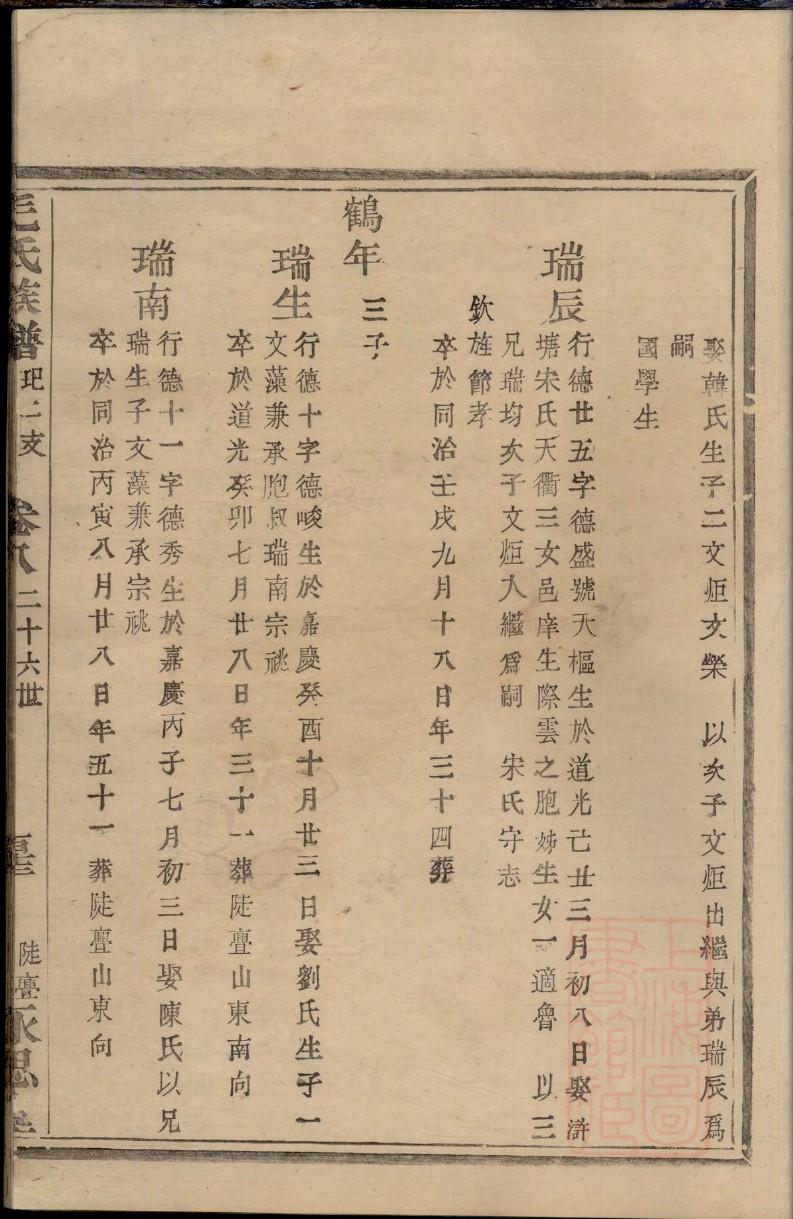 娶韓氏生子二文炬文榮　以次子文炬出繼與弟瑞辰爲
嗣
國學生
瑞辰
行德廿五字德盛號天樞生於道光己丑三月初八日娶滸
塘宋氏天衢三女邑庠生際雲之胞姊生女一適魯　以三
兄瑞均次子文炬入繼爲嗣　宋氏守志
欽旌節孝
卒於同治壬戌九月十八日年三十四葬
鶴年　三子
瑞生
行德十字德峻生於嘉慶癸酉十月廿三日娶劉氏生子一
文藻兼承胞叔瑞南宗祧
卒於道光癸卯七月廿八日年三十一葬陡亹山東南向
瑞南
行德十一字德秀生於嘉慶丙子七月初三日娶陳氏以兄
瑞生子文藻兼承宗祧
卒於同治丙寅八月廿八日年五十一葬陡亹山東向
毛氏族譜　玘二支　卷八　二十六世　陡亹永思
上海圖書館藏